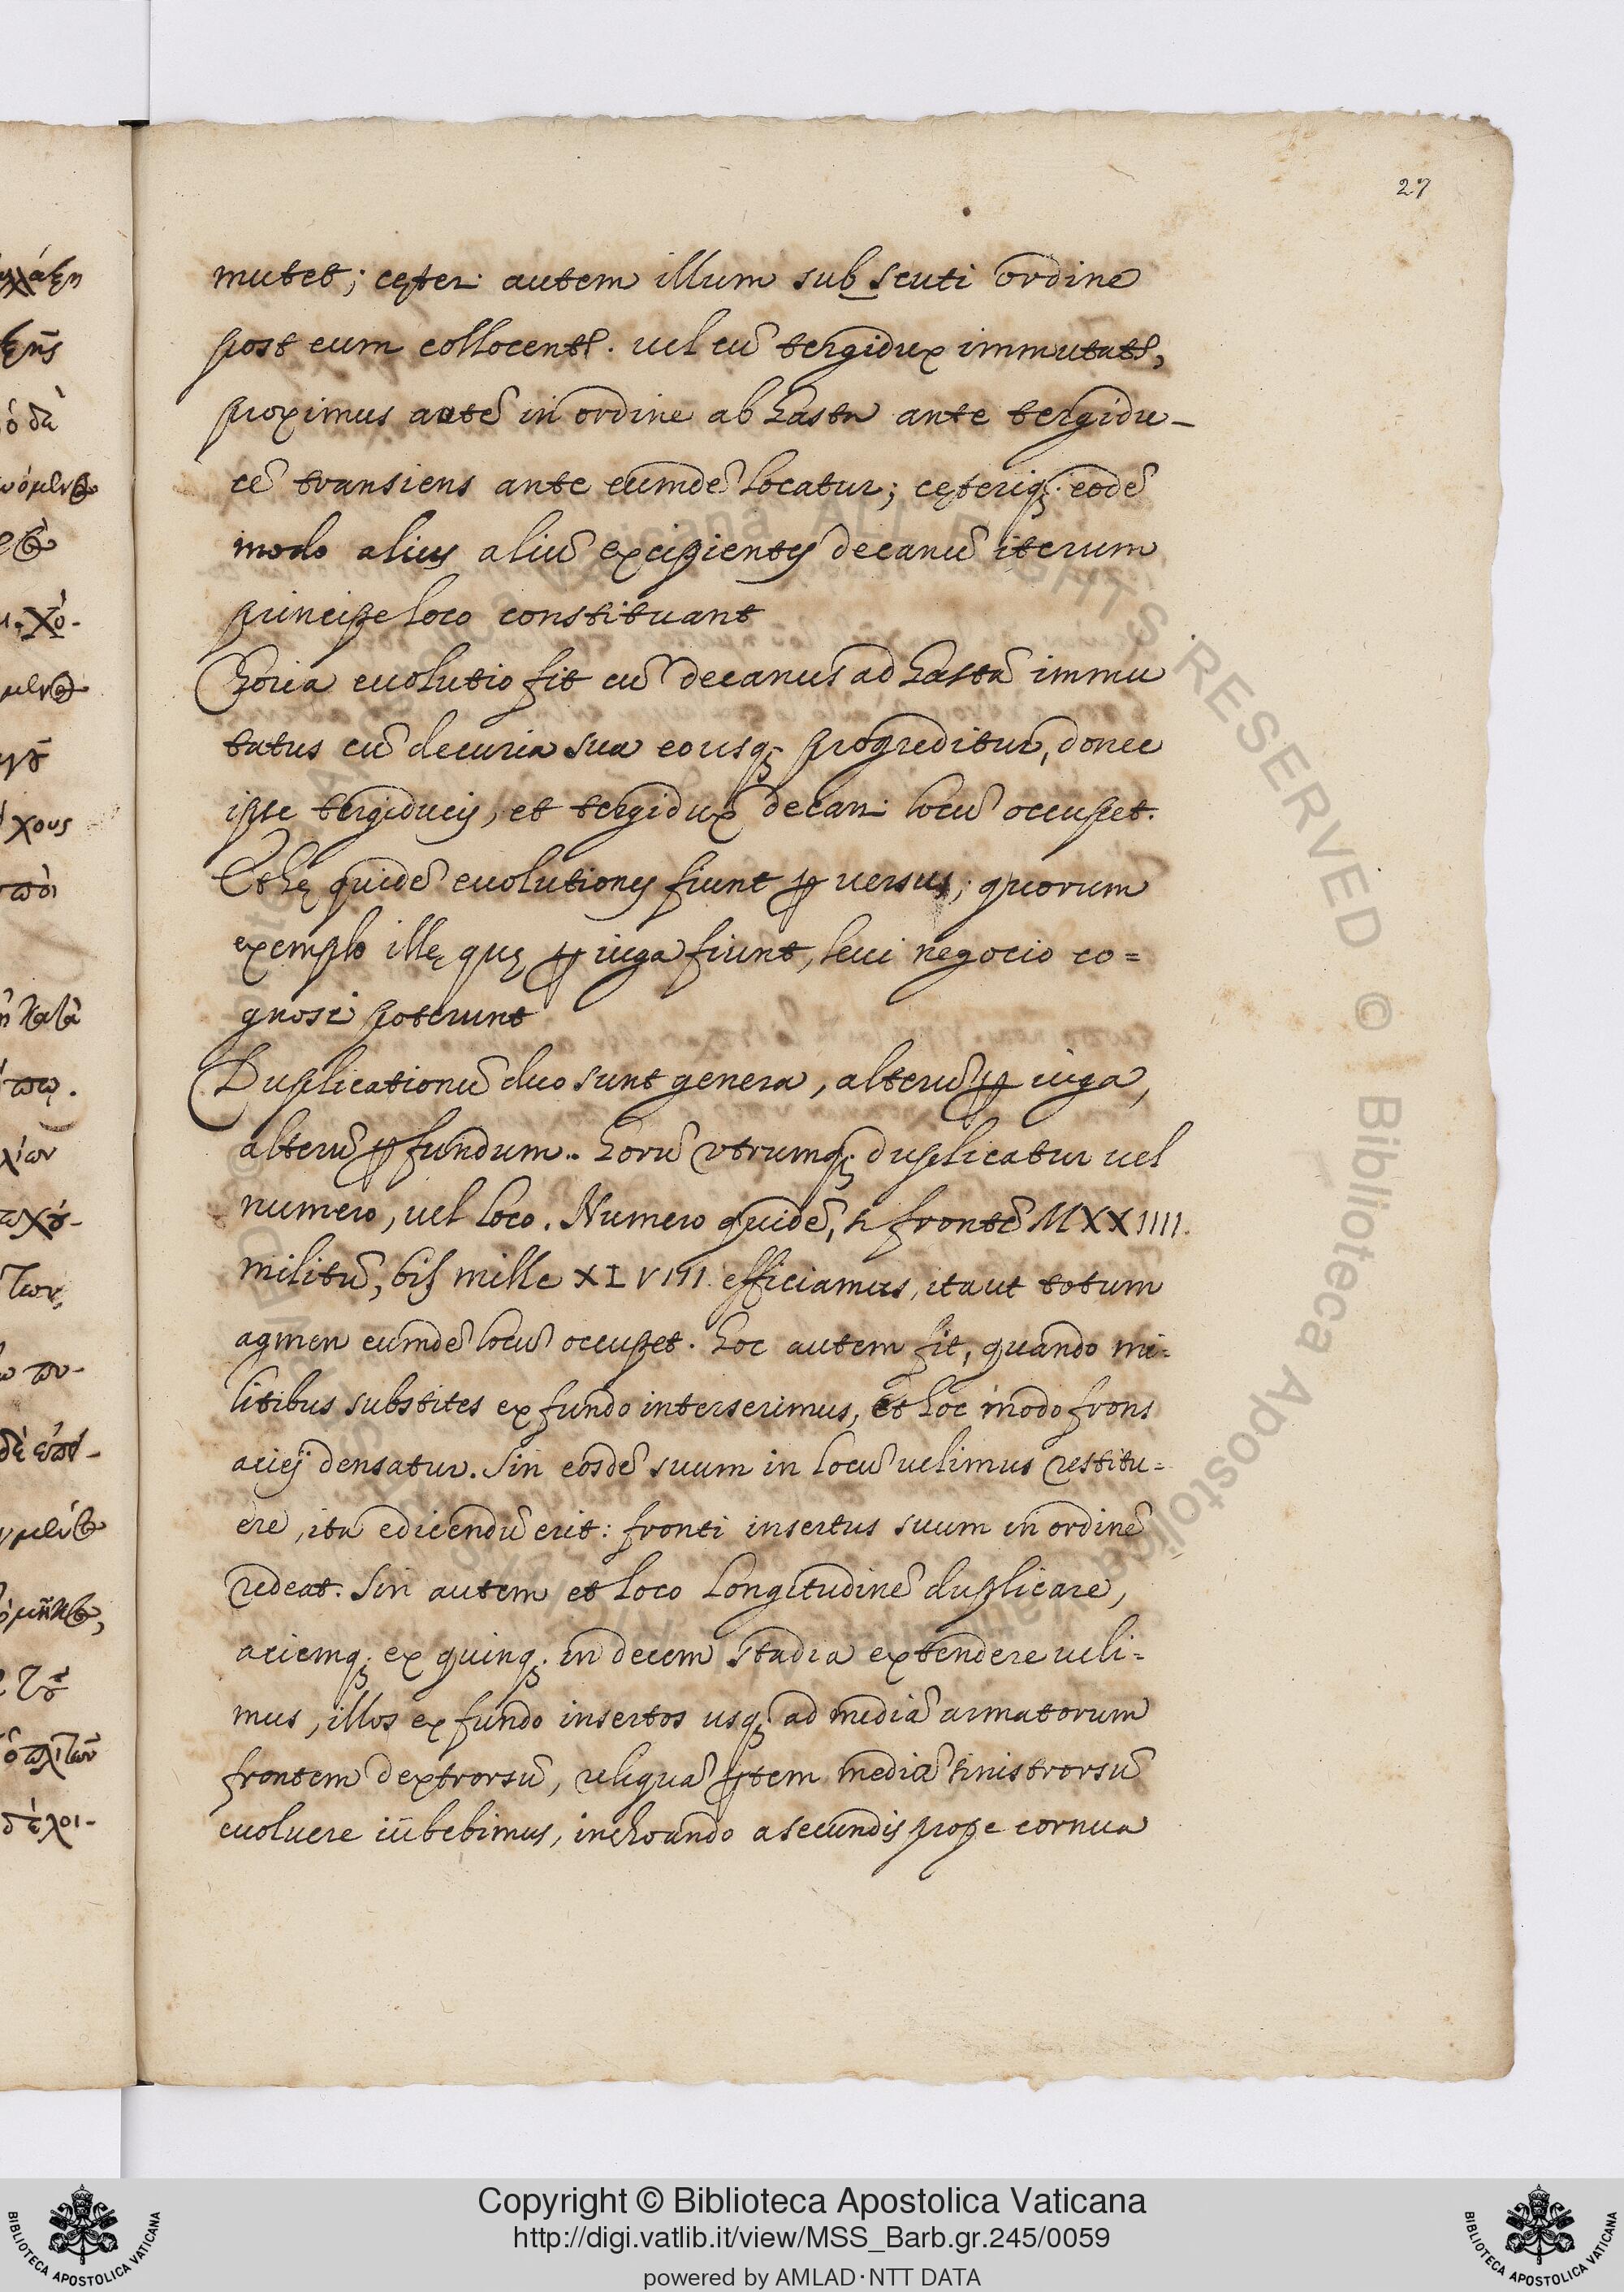 27
mutet; cęteri autem illum sub scuti ordine
post eum collocentr. uel cū tergidux immutatr,
proximus autē in ordine ab hasta ante tergidu-
cē transiens ante eumdē locatur; cęteriq; eodē
modo alius aliū excipientes decanū iterum
principe loco constituant
Choria euolutio fit cū decanus ad hastā immu
tatus cū decuria sua eousq; progreditur, donec
ipse tergiducis, et tergidux decani locū occupet.
Et hę quidē euolutiones fiunt ꝑ uersus; quorum
exemplo illę quę ꝑ iuga fiunt, leui negocio co=
gnosci poterunt
Duplicationū duo sunt genera, alterū ꝑ iuga,
alterū ꝑ fundum.. horū vtrumq; duplicatur uel
numero, uel loco. Numero quidē, si frontē MXXIIII.
militū, bis mille XLVIII. efficiamus, ita ut totum
agmen eumdē locū occupet. hoc autem fit, quando mi=
litibus substites ex fundo interserimus, et hoc modo frons
aciej densatur. Sin eosdē suum in locū uelimus restitu=
ere, ita edicendū erit: fronti insertus suum in ordinē
redeat. Sin autem et loco longitudinē duplicare,
aciemq; ex quinq; in decem stadia extendere ueli=
mus, illos ex fundo insertos usq; ad mediā armatorum
frontem dextrorsū, reliquā ꝑtem mediā sinistrorsū
euoluere iubebimus, inchoando a secundis prope cornua
Copyright © Biblioteca Apostolica Vaticana
http://digi.vatlib.it/view/MSS_Barb.gr.245/0059
powered by AMLAD·NTT DATA
BIBLIOTECA APOSTOLICA VATICANA
BIBLIOTECA APOSTOLICA VATICANA